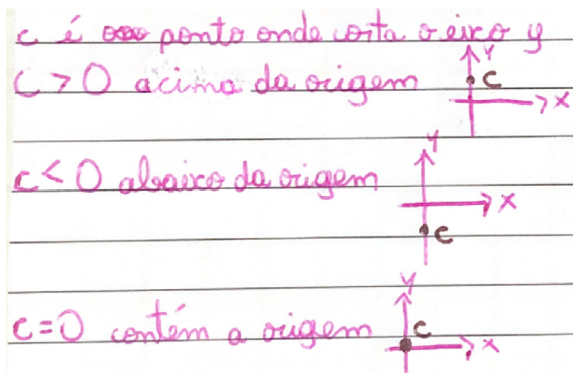 c é o ponto onde corta o eixo y
C > 0 acima da origem
Y
C
X
c < 0 abaixo da origem
Y
X
C
c = 0 contém a origem
Y
C
X